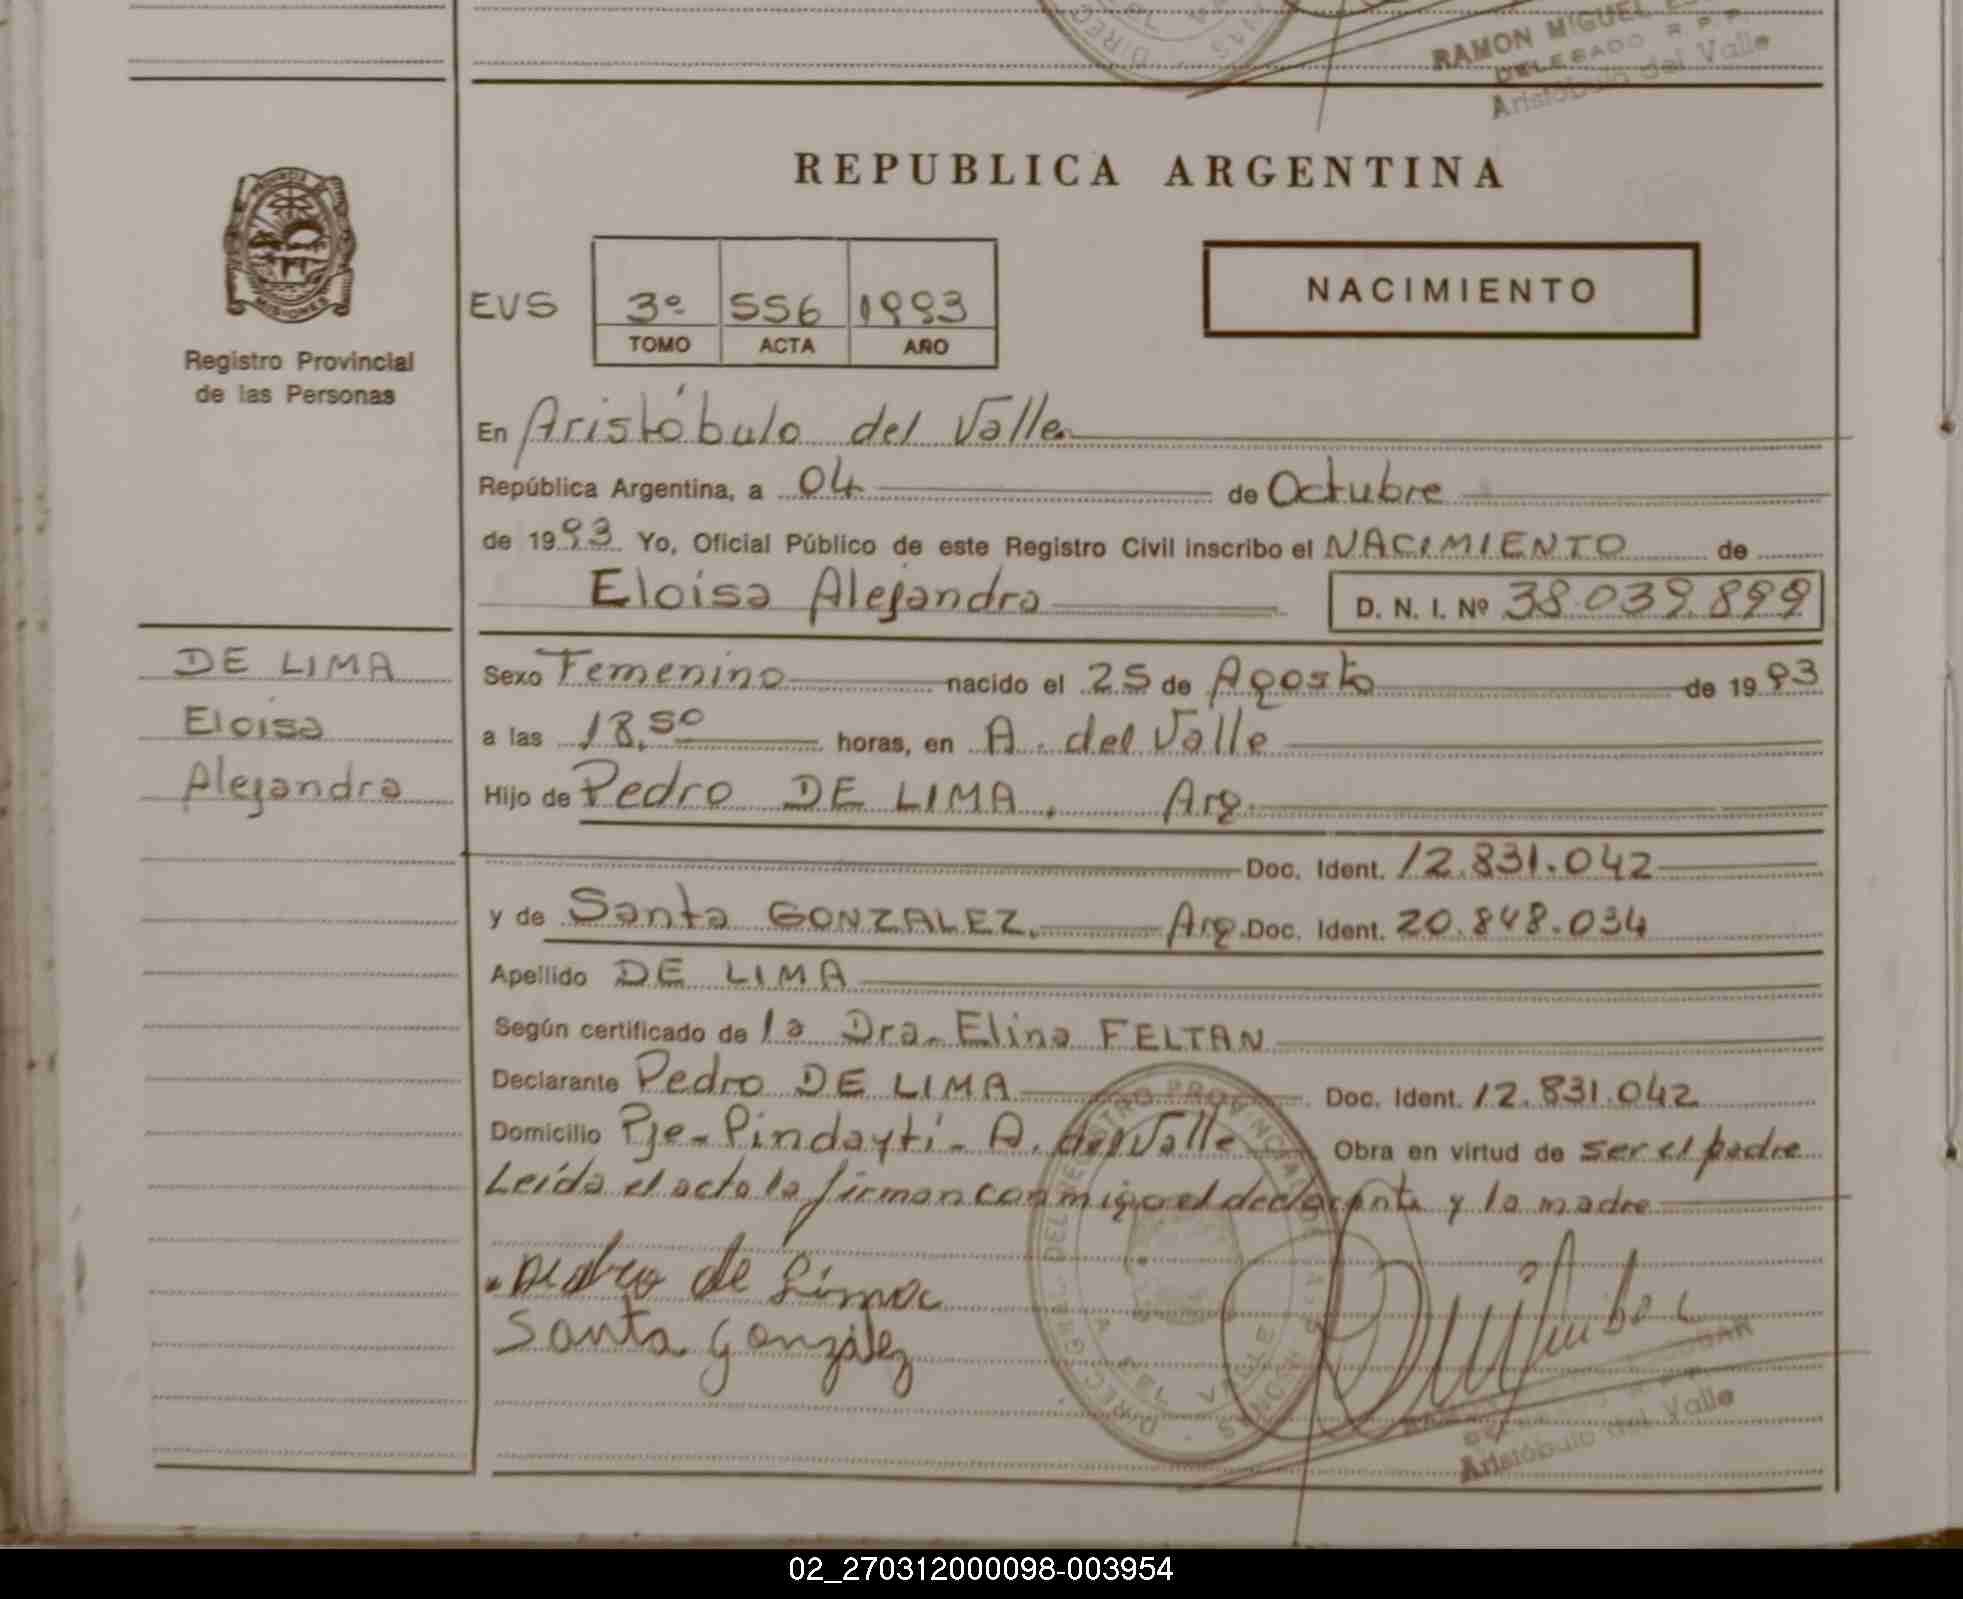 RAMON MIGUEL
DELEGADO R.P.P.
Aristóbulo del Valle
REPUBLICA ARGENTINA
PROVINCIA
MISIONES
Registro Provincial
de las Personas
EVS 3º 556 1993
TOMO ACTA AÑO
NACIMIENTO
En Aristóbulo del Valle
República Argentina, a 04 de Octubre
de 1993 Yo, Oficial Público de este Registro Civil inscribo el NACIMIENTO de
Eloisa Alejandra D. N. I. Nº 38.039.899
DE LIMA
Eloisa
Alejandra
Sexo Femenino nacido el 25 de Agosto de 1993
a las 18,50 horas, en A. del Valle
Hijo de Pedro DE LIMA, Arg.
Doc. Ident. 12.831.042
y de Santa GONZALEZ, Arg. Doc. Ident. 20.848.034
Apellido DE LIMA
Según certificado de la Dra. Elina FELTAN
Declarante Pedro DE LIMA Doc. Ident. 12.831.042
Domicilio Pje- Pindaytí- A. del Valle Obra en virtud de ser el padre
Leída el acta la firman conmigo el declarante y la madre
Pedro de Lima
Santa González
Aristóbulo del Valle
02_270312000098-003954